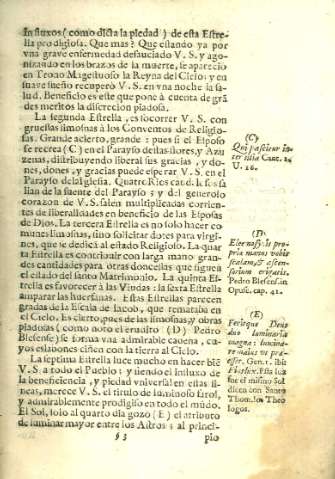 Influxos ( como dicta la piedad ) de esta Estre-
lla prodigiosa. Que mas? Que estando ya por
vna grave enfermedad desauciado V. S. y ago-
nizando en los brazos de la muerte, se aparecio
en Trono Magestuoso la Reyna del Cielo; y en
suave sueño recuperò V. S. en vna noche la sa-
lud. Beneficio es este que pone à cuenta de grā
des meritos la discrecion piadosa.
La segunda Estrella, es socorrer V. S. con
gruessas limosnas à los Conventos de Religio-
sas. Grande acierto, grande: pues si el Esposo
se recrea (C) en el Parayso destas flores, y Azu
zenas, distribuyendo liberal sus gracias, y do-
nes, dones, y gracias puede esperar V. S. en el
Parayso de la Iglesia. Quatro Rios caudales sa-
lian de la fuente del Parayso; y del generoso
corazon de V. S. salen multiplicadas corrien-
tes de liberalidades en beneficio de las Esposas
de Dios. La tercera Estrella es no solo hazer co
munes limosnas, sino solicitar dotes para virgi-
nes, que se dedicā al estado Religioso. La quar
ta Estrella es contribuir con larga mano gran-
des cantidades para otras doncellas que siguen
el estado del santo Matrimonio. La quinta Es-
trella es favorecer à las Viudas: la sexta Estrella
amparar las huerfanas. Estas Estrellas parecen
gradas de la Escala de Iacob, que remataba en
el Cielo. Es cierto, pues de las limosnas, y obras
piadosas ( como noto el erudito (D) Pedro
Blesense) se forma vna admirable cadena, cu-
yos eslabones ciñen con la tierra al Cielo.
La septima Estrella luce mucho en hacer biē
V. S. à todo el Pueblo: y siendo el influxo de
la beneficencia, y piedad vniversal en estas li-
neas, merece V. S. el titulo de luminoso farol,
y admirablemente prodigioso en todo el mūdo.
El Sol, solo al quarto dia gozò (E) el atributo
de luminar mayor entre los Astros: al princi-
§3 pio
(C)
Qui pascitur in-
ter lilia Cant. 2.
V. 16.
(D)
Pedro Blesens. in
Opusc. cap. 41.
(E)
Fecitque Deus
duo luminaria
magna: lumina-
re maius vt præ-
esset. Gen. 1.
fue el mismo Sol
dicen con Santo
Thom. los Theo
logos.